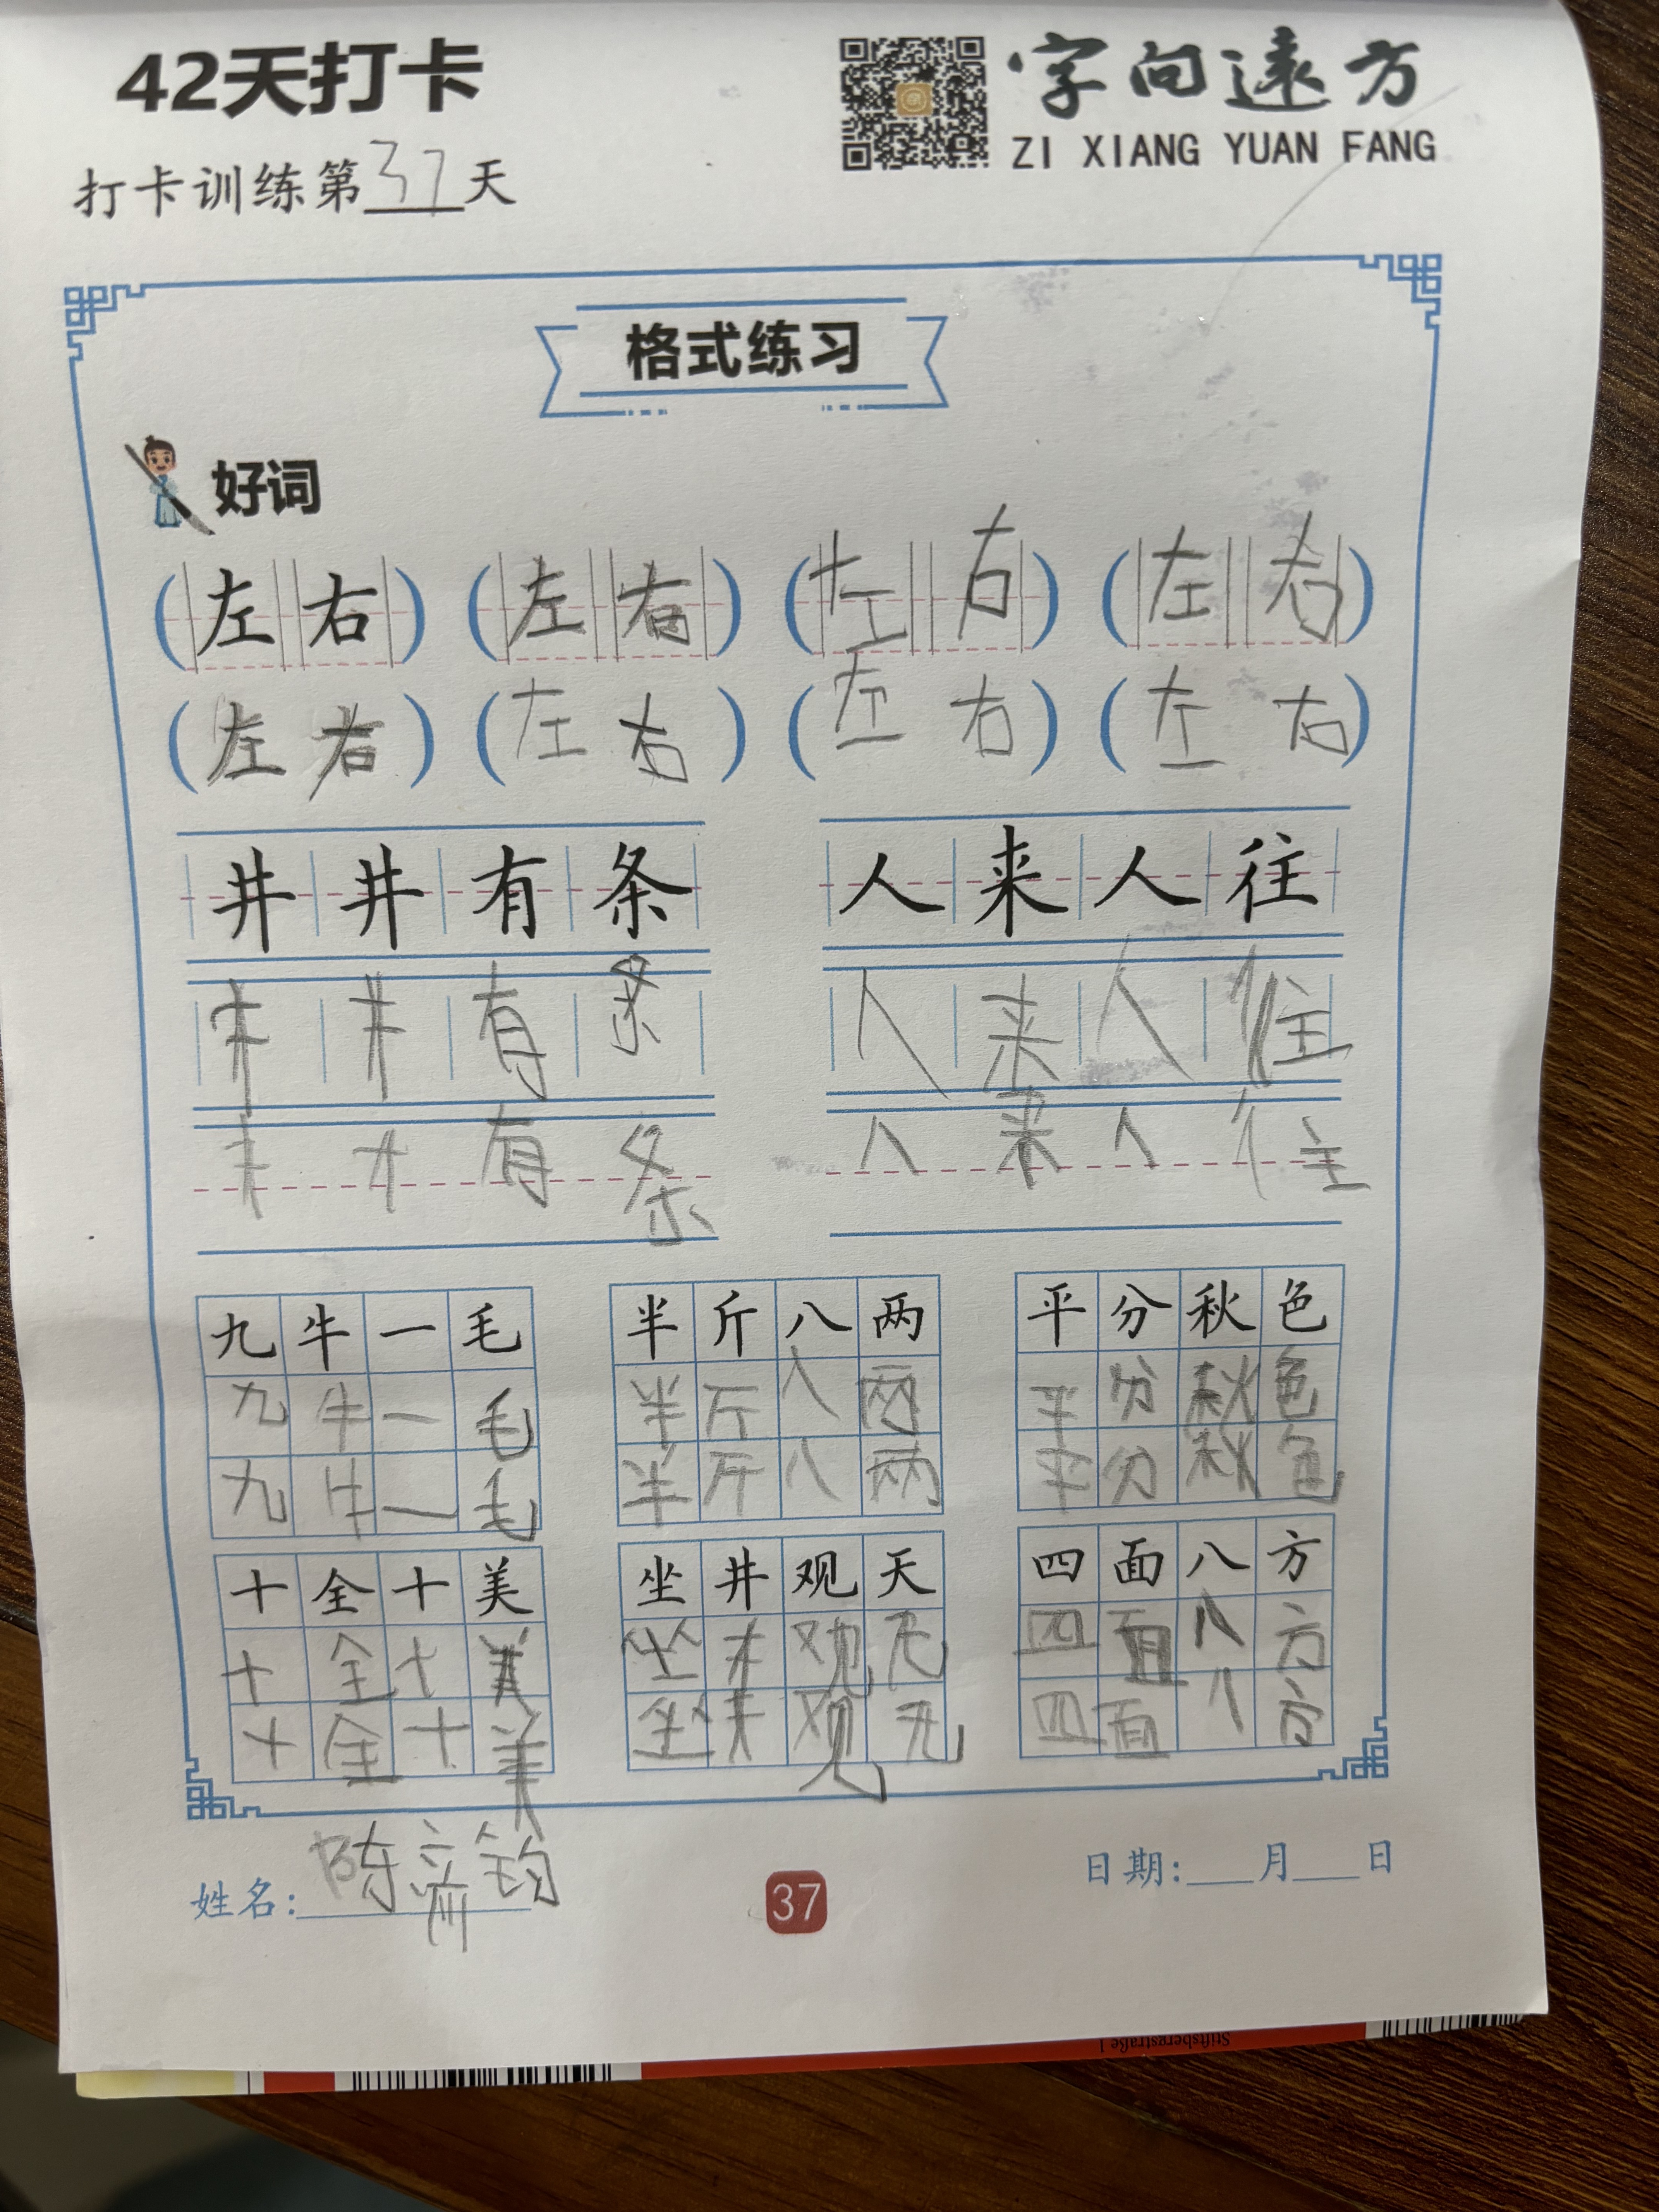 42天打卡
字向远方
ZI XIANG YUAN FANG
打卡训练第37天
格式练习
好词
(左右) (左右) (左右) (左右)
(左右) (左右) (左右) (左右)
井井有条 人来人往
井井有条 人来人往
井井有条 人来人往
九牛一毛 半斤八两 平分秋色
九牛一毛 半斤八两 平分秋色
九牛一毛 半斤八两 平分秋色
十全十美 坐井观天 四面八方
十全十美 坐井观天 四面八方
十全十美 坐井观天 四面八方
姓名: 陈 钧
37
日期:___月___日
Stiftsbergstraße 1